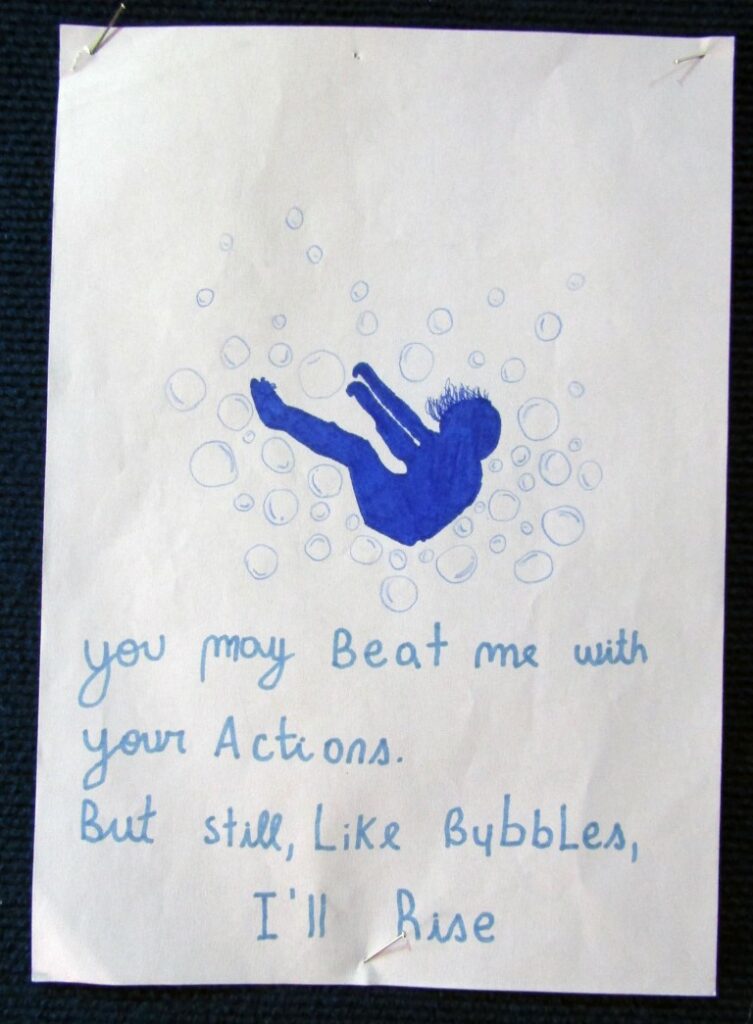 you may Beat me with
your Actions.
But still, Like Bybbles,
I'll Rise